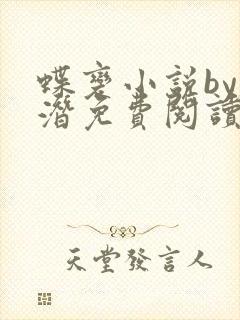 蝶裔小説by
潛免費閱讀
天堂發言人